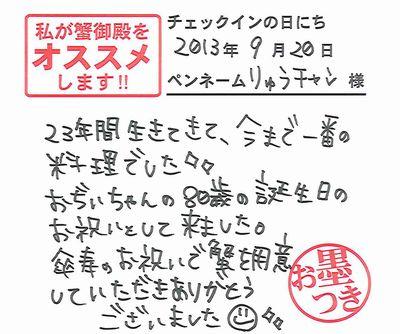 私が蟹御殿を
オススメ
します!!
チェックインの日にち
2013年 9月20日
ペンネームりゅうチャン 様
23年間生きてきて、今まで一番の
料理でした
おぢぃちゃんの80歳の誕生日の
お祝いとして来ました。
傘寿のお祝いで蟹を用意
していただきありがとう
ございました
お墨つき